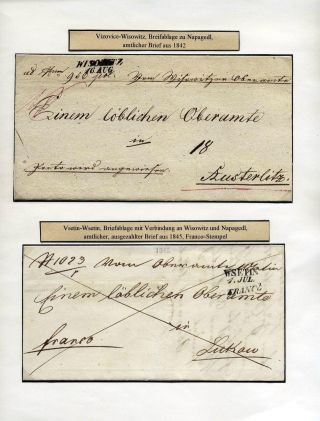 Vizovice-Wisowitz, Breifablage zu Napagedl,
amtlicher Brief aus 1842
WISOWITZ
10. AUG.
ad Num 960 pol. Vom Wisowitzer Oberamte
Einem löblichen Oberamte
in
18
Porto wird angewiesen
Zlusterlitz
Vsetin-Wsetin, Briefablage mit Verbindung an Wisowitz und Napagedl,
amtlicher, ausgezahlter Brief aus 1845, Franco-Stempel
1845
N 1023 Vom Oberamte Wsetin
WSETIN
1. JUL.
FRANCO
Einem löblichen Oberamte
in
franco
Lukow